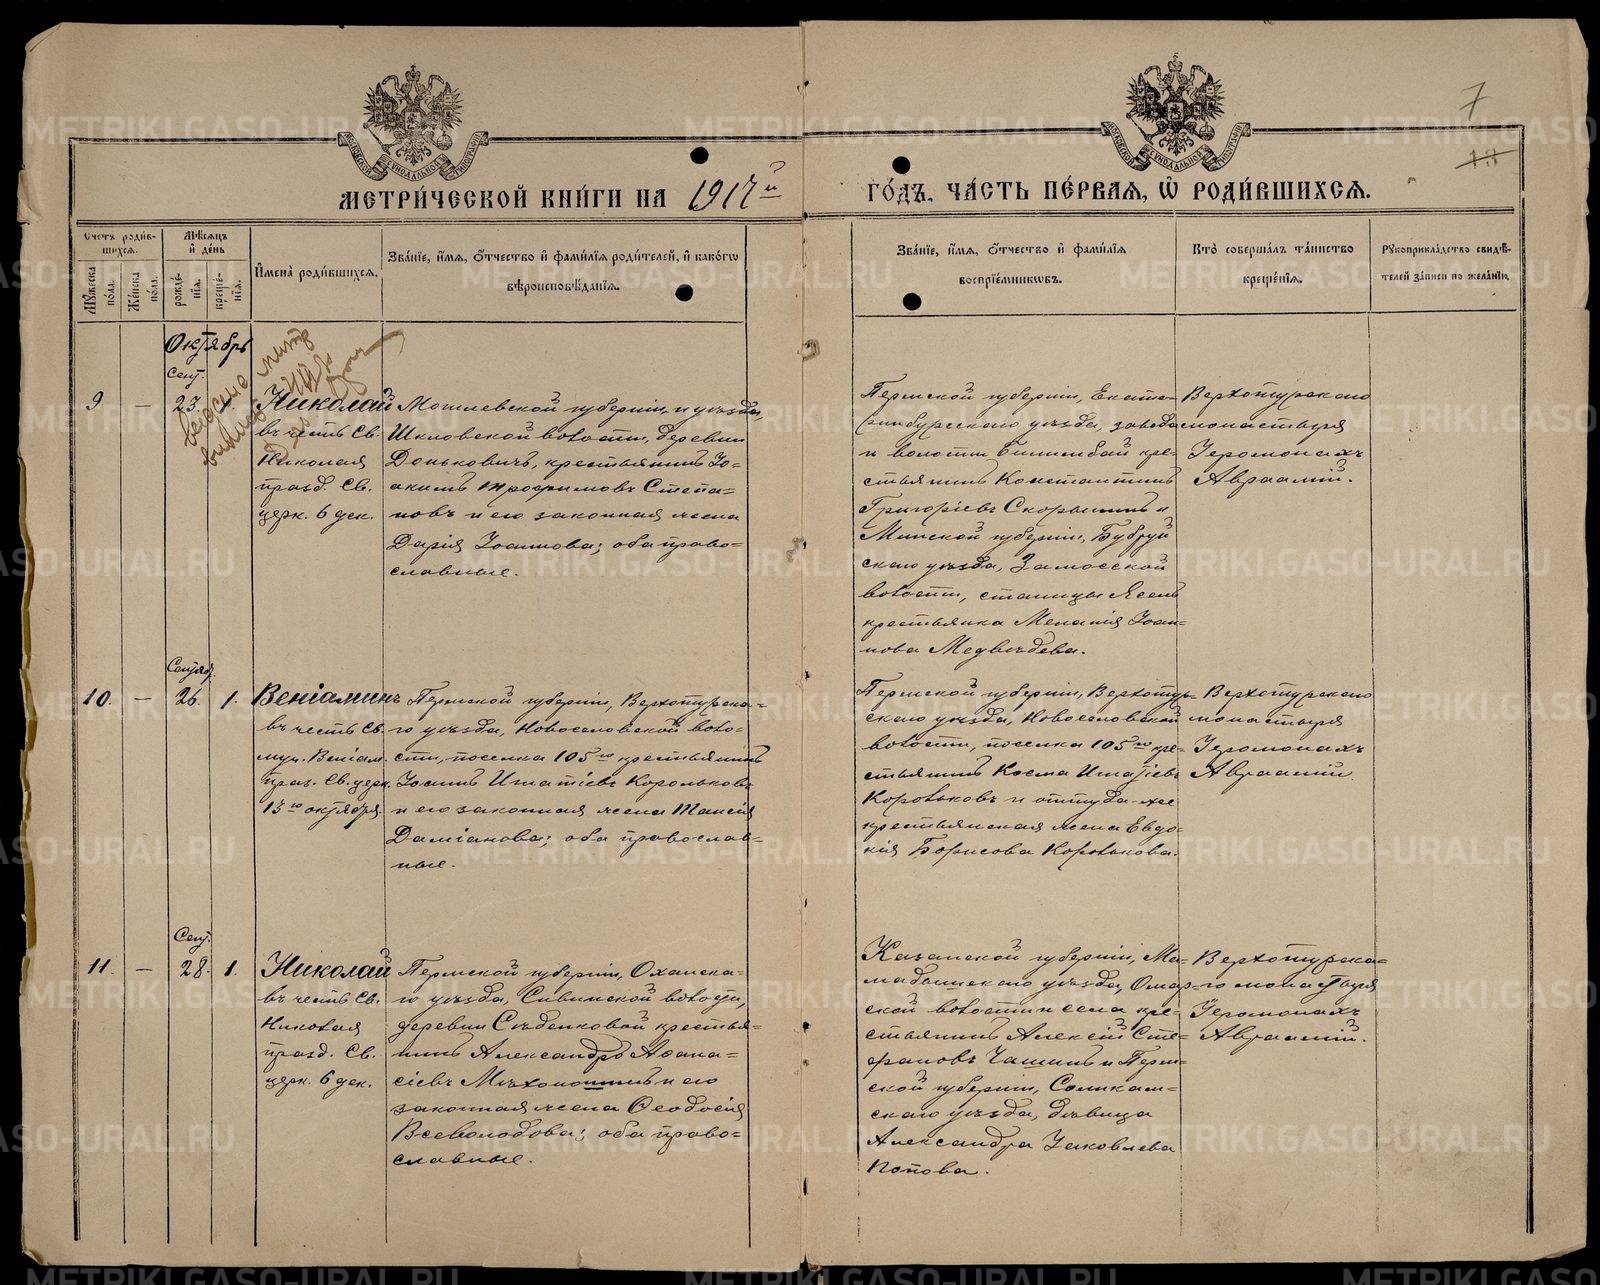 МЕТРИ́ЧЕСКОЙ КНИ́ГИ НА 1917 й
ГО́ДЪ, ЧА́СТЬ ПЕ́РВАЯ, Ѽ РОДИ́ВШИХСѦ.
7
13
Счетъ роди́в-
шихсѧ.
Мѣ́сѧцъ
и҆ де́нь
Мꙋ́жеска
по́ла.
Же́нска
по́ла.
рожде́-
нїѧ.
креще́-
нїѧ.
И҆мена̀ роди́вшихсѧ.
Зва́нїе, и҆́мѧ, ѻ҆́тчество и҆ фами́лїѧ роди́телей, и҆ како́гѡ
вѣроисповѣ́данїѧ.
Зва́нїе, и҆́мѧ, ѻ҆́тчество и҆ фами́лїѧ
воспрїе́мникѡвъ.
Кто̀ соверша́лъ та́инство
креще́нїѧ.
Рꙋкоприкла́дство свидѣ́-
телей за́писи по жела́нїю.
Октябрь
Сент.
9 — 23. 1.
Николай
въ честь Св.
Николая
празд. Св.
церк. 6 дек.
Могилевской губерніи, и уѣзда,
Шкловской волости, деревни
Доньковичъ, крестьянинъ Іо-
акимъ Трофимовъ Степа-
новъ и его законная жена
Дарія Іоаннова; оба право-
славные.
Пермской губерніи, Екате-
ринбургскаго уѣзда, завода
и волости Билимбай кре-
стьянинъ Константинъ
Григоріевъ Скорынинъ и
Минской губерніи, Бобруй
скаго уѣзда, Замосской
волости, станицы Ясень
крестьянка Меланія Іоан-
нова Медвѣдева.
Верхотурскаго
монастыря
Іеромонахъ
Авраамій.
Сентяб.
10. — 26. 1.
Веніаминъ
въ честь Св.
муч. Веніам.
праз. Св. церк.
13го октября.
Пермской губерніи, Верхотурска-
го уѣзда, Новоселовской воло-
сти, поселка 105го крестьянинъ
Іосифъ Игнатіевъ Корольковъ
и его законная жена Таисія
Даміанова; оба православ-
ные.
Пермской губерніи, Верхотур-
скаго уѣзда, Новоселовской
волости, поселка 105го кре-
стьянинъ Косма Игнатіевъ
Корольковъ и оттуда-же
крестьянская жена Евдо-
кія Борисова Королькова.
Верхотурскаго
монастыря
Іеромонахъ
Авраамій.
Сент.
11. — 28. 1.
Николай
въ честь Св.
Николая
празд. Св.
церк. 6 дек.
Пермской губерніи, Оханска-
го уѣзда, Сивинской волости,
деревни Сѣденковой крестья-
нинъ Александръ Аѳана-
сіевъ Мѣхоношинъ и его
законная жена Ѳеодосія
Всеволодова; оба право-
славные.
Казанской губерніи, Ма-
мадышскаго уѣзда, Омар-
ской волости и села кре-
стьянинъ Алексій Сте-
фановъ Чашинъ и Перм-
ской губерніи, Соликам-
скаго уѣзда, дѣвица
Александра Іаковлева
Попова.
Верхотурска-
го монастыря
Іеромонахъ
Авраамій.
METRIKI.GASO-URAL.RU